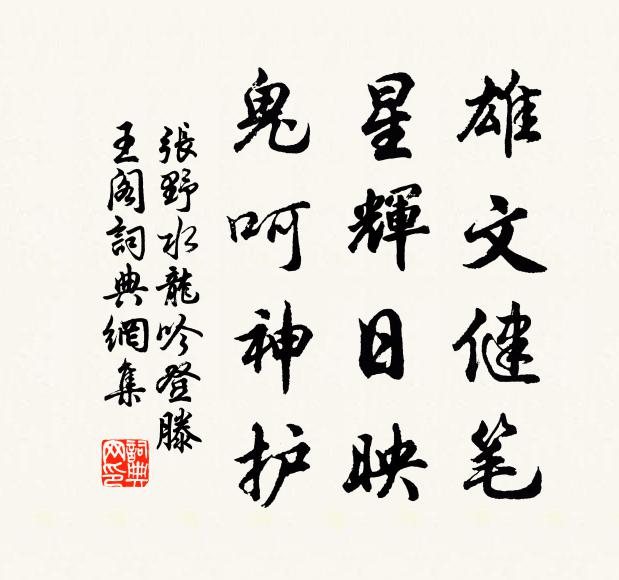 雄文健笔
星輝日映
鬼呵神护
張野水龍吟登滕
王阁詞典網集
詞典网印